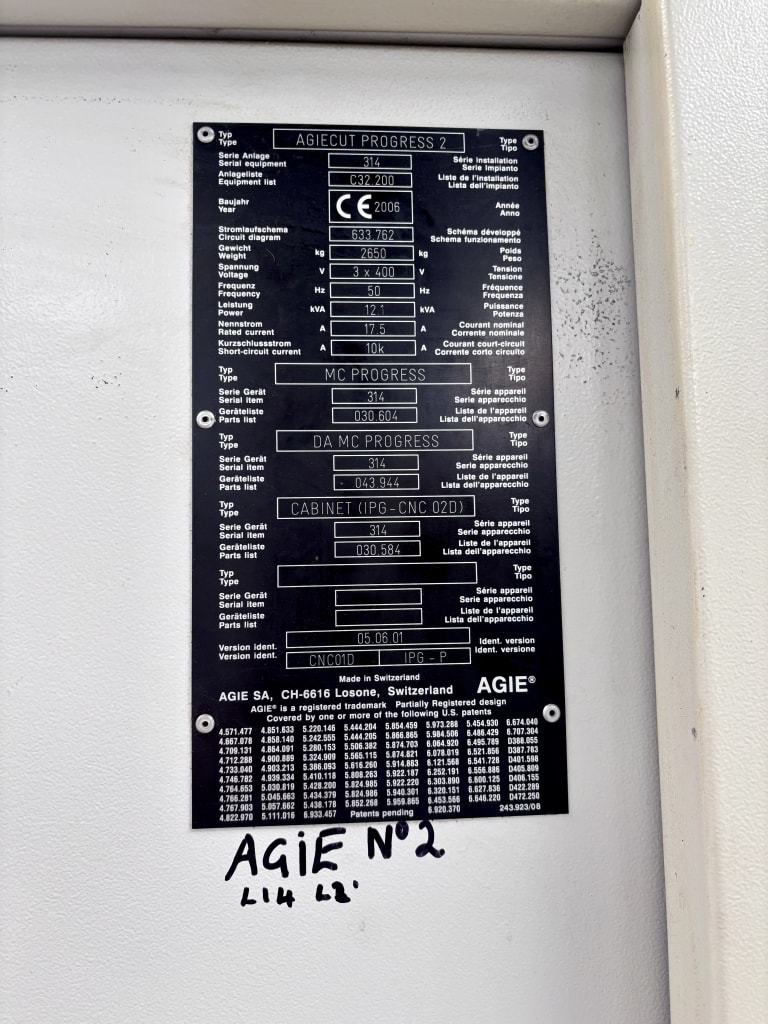 Typ Type AGIECUT PROGRESS 2 Type Tipo
Serie Anlage Serial equipment 314 Série installation Serie impianto
Anlageliste Equipment list C32.200 Liste de l'installation Lista dell'impianto
Baujahr Year CE 2006 Année Anno
Stromlaufschema Circuit diagram 633.762 Schéma développé Schema funzionamento
Gewicht Weight kg 2650 kg Poids Peso
Spannung Voltage V 3 x 400 V Tension Tensione
Frequenz Frequency Hz 50 Hz Fréquence Frequenza
Leistung Power kVA 12.1 kVA Puissance Potenza
Nennstrom Rated current A 17.5 A Courant nominal Corrente nominale
Kurzschlussstrom Short-circuit current A 10k A Courant court-circuit Corrente corto circuito
Typ Type MC PROGRESS Type Tipo
Serie Gerät Serial item 314 Série appareil Serie apparecchio
Geräteliste Parts list 030.604 Liste de l'appareil Lista dell'apparecchio
Typ Type DA MC PROGRESS Type Tipo
Serie Gerät Serial item 314 Série appareil Serie apparecchio
Geräteliste Parts list 043.944 Liste de l'appareil Lista dell'apparecchio
Typ Type CABINET (IPG-CNC 02D) Type Tipo
Serie Gerät Serial item 314 Série appareil Serie apparecchio
Geräteliste Parts list 030.584 Liste de l'appareil Lista dell'apparecchio
Typ Type Type Tipo
Serie Gerät Serial item Série appareil Serie apparecchio
Geräteliste Parts list Liste de l'appareil Lista dell'apparecchio
05.06.01
Version ident. Version ident. CNC01D IPG - P Ident. version Ident. versione
Made in Switzerland
AGIE SA, CH-6616 Losone, Switzerland AGIE®
AGIE® is a registered trademark Partially Registered design
Covered by one or more of the following U.S. patents
4.571.477 4.851.633 5.220.146 5.444.204 5.854.459 5.973.288 5.454.930 6.674.040
4.667.078 4.858.140 5.242.555 5.444.205 5.866.865 5.984.506 6.486.429 6.707.304
4.709.131 4.864.091 5.280.153 5.506.382 5.874.703 6.064.920 6.495.789 D368.055
4.712.288 4.900.889 5.324.909 5.565.115 5.874.821 6.078.019 6.521.856 D387.783
4.733.040 4.903.213 5.386.093 5.616.260 5.914.883 6.121.568 6.541.728 D401.598
4.746.782 4.939.334 5.410.118 5.808.263 5.922.187 6.252.191 6.556.886 D405.809
4.764.653 5.030.819 5.428.200 5.824.985 5.922.220 6.303.890 6.600.125 D406.155
4.766.281 5.045.663 5.434.379 5.824.986 5.940.301 6.320.151 6.627.836 D422.289
4.767.903 5.057.662 5.438.178 5.852.268 5.959.865 6.453.566 6.646.220 D472.250
4.822.970 5.111.016 6.933.457 Patents pending 6.920.370 243.923/08
AGiE N° 2
L14 L2'